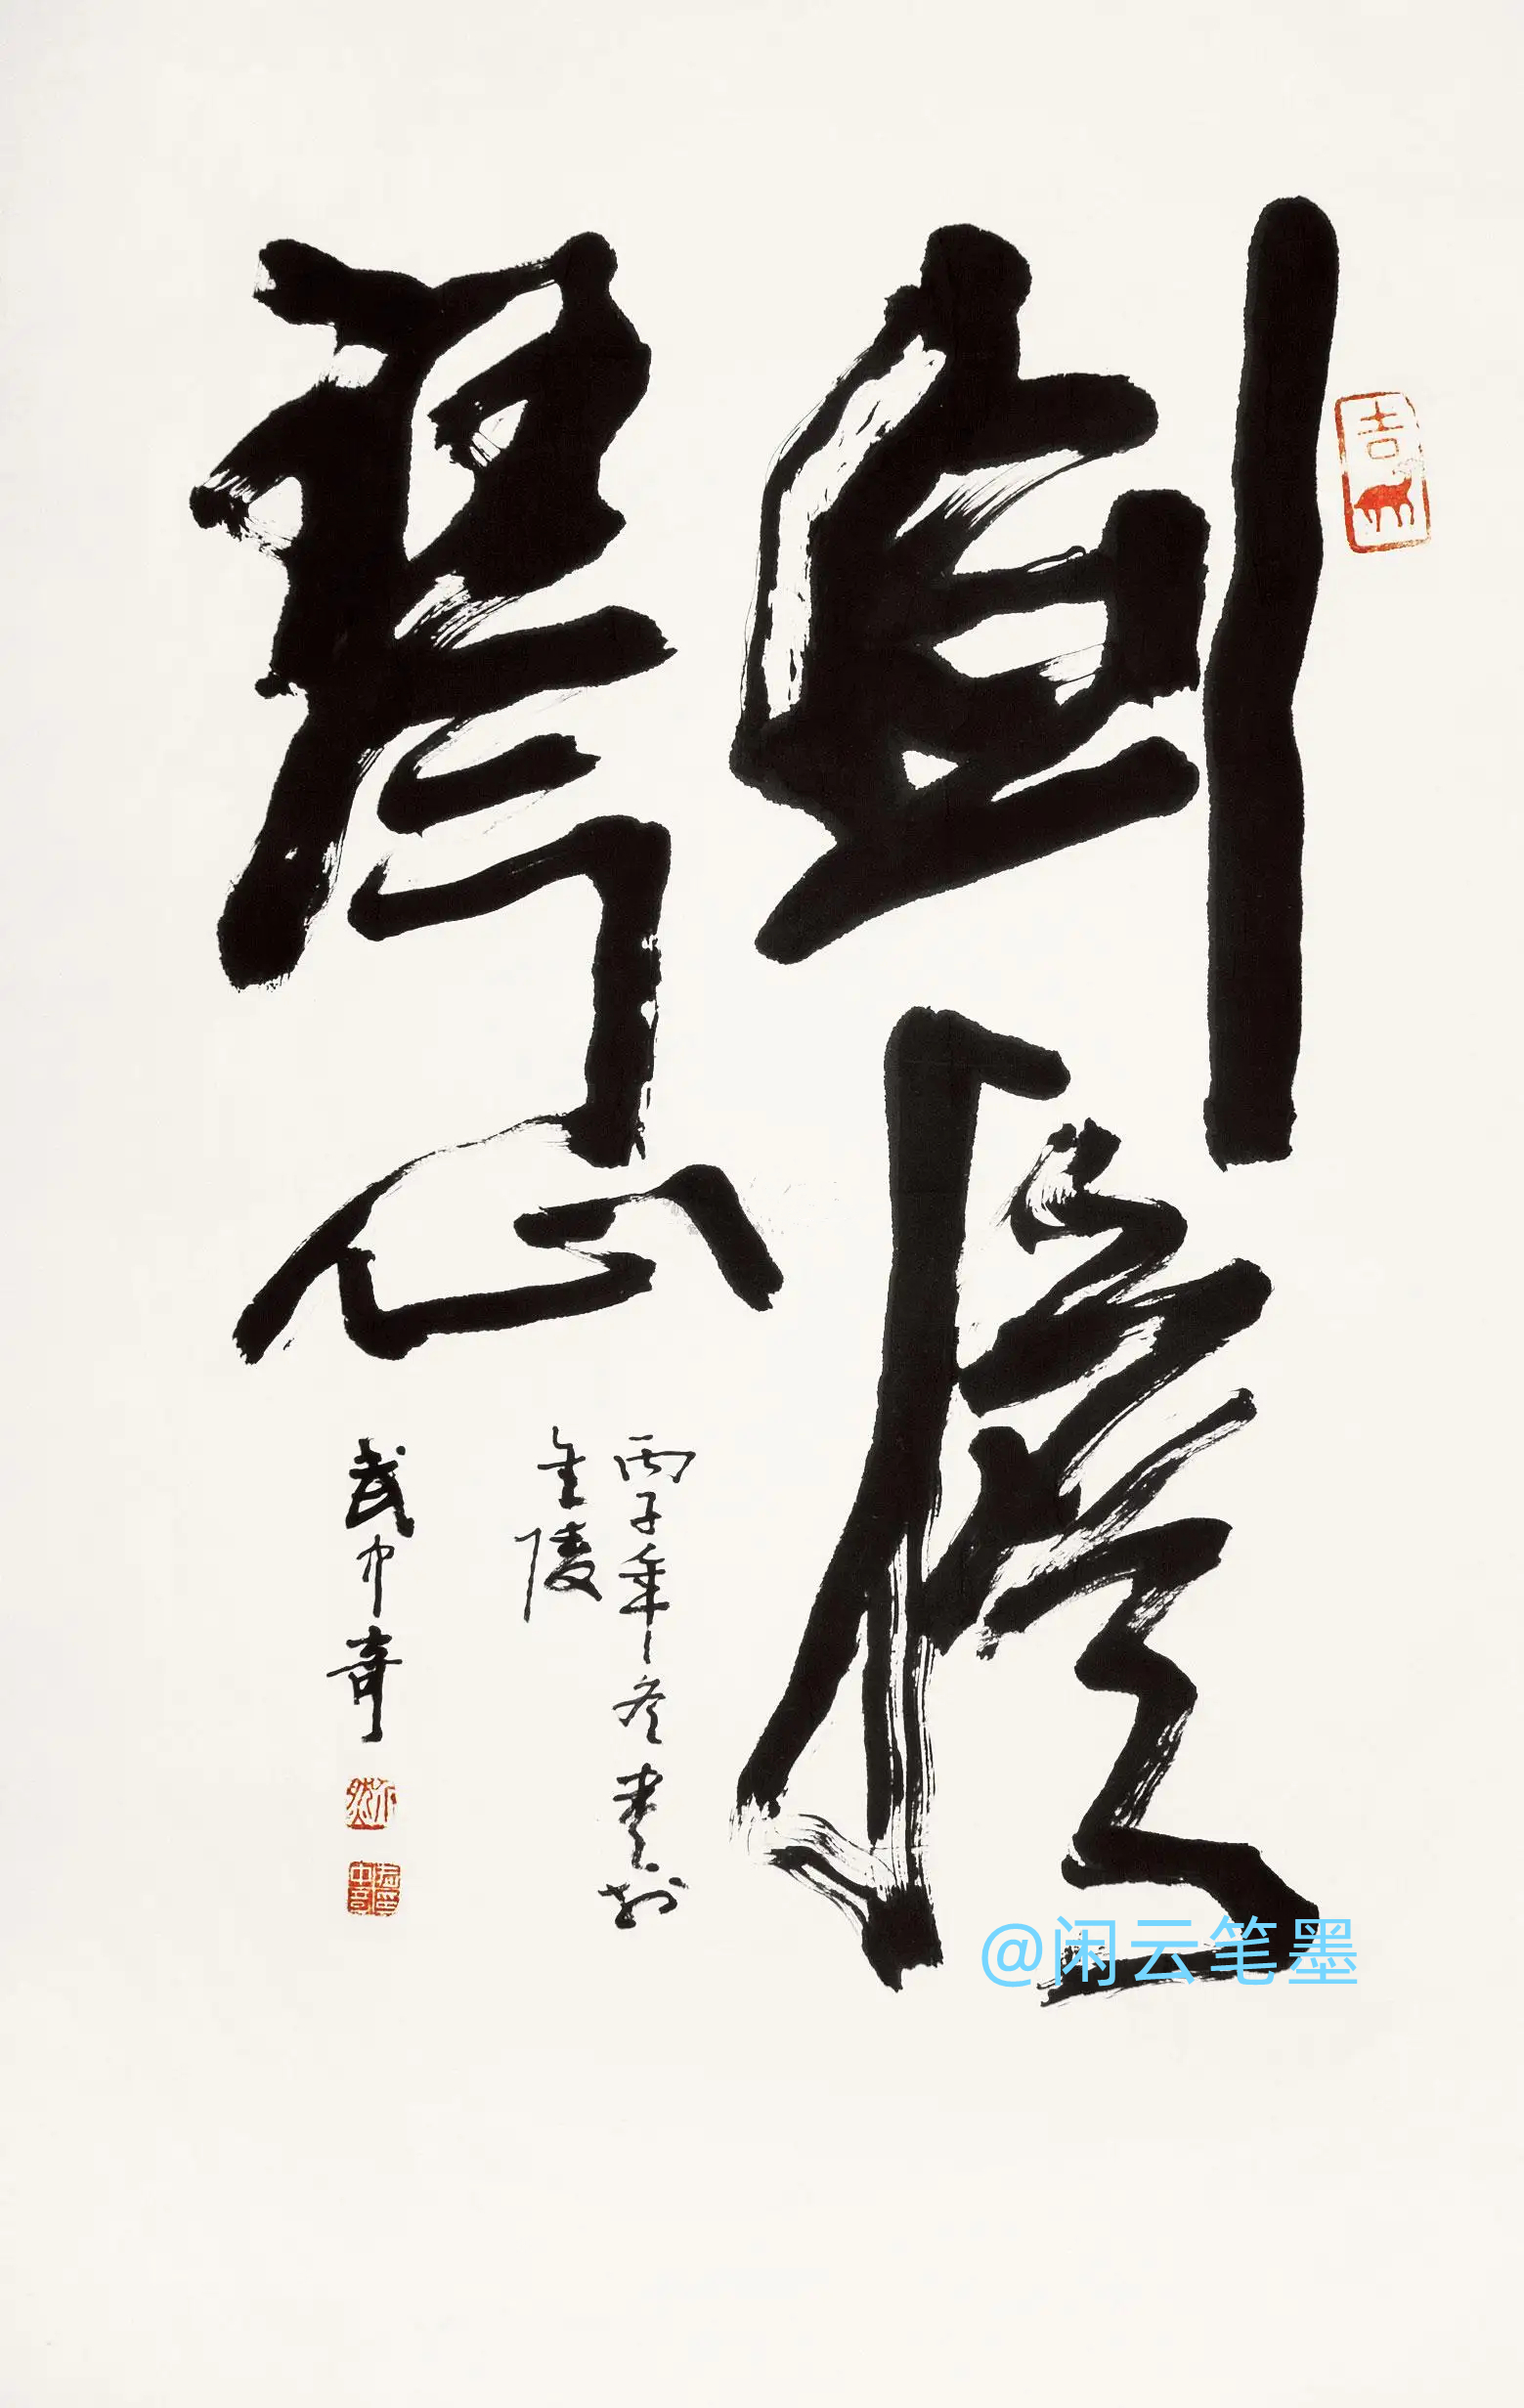 剑胆
琴心
丙子年冬书于
金陵
武中奇
吉
@闲云笔墨